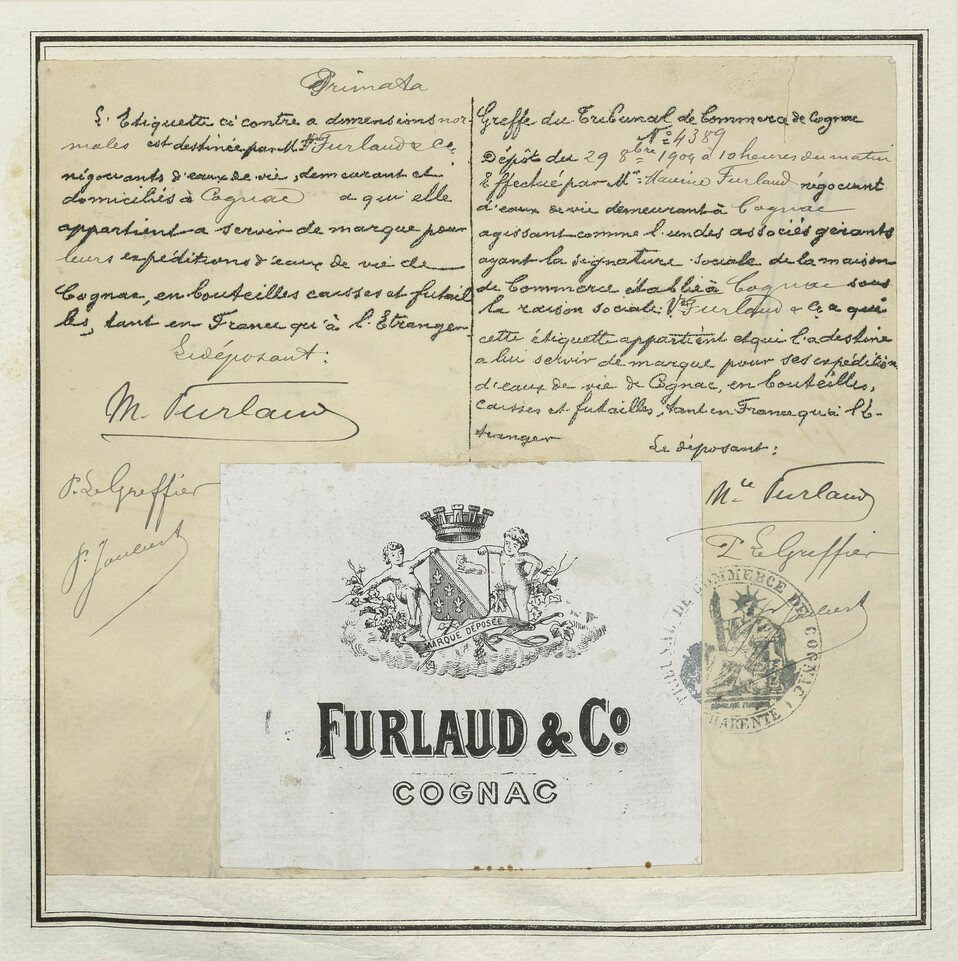 Primata
L'Etiquette ci contre a dimensions nor-
males est destinée par M. Vve Furlaud & Co,
négociants d'eaux de vie, demeurant et
domiciliés à Cognac a qui elle
appartient a servir de marque pour
leurs expéditions d'eaux de vie de
Cognac, en bouteilles caisses et futail
les, tant en France qu'à l'Etranger
Le déposant:
M. Furlaud
P. Le Greffier
Greffe du Tribunal de Commerce de Cognac
No: 4389
Dépôt du 29 8bre 1904 à 10 heures du matin
Effectué par Mr: Maurice Furlaud négociant
d'eaux de vie demeurant à Cognac
agissant comme l'un des associés gérants
ayant la signature sociale de la maison
de Commerce établie à Cognac sous
la raison sociale: Vve Furlaud & Co, a qui
cette étiquette appartient et qui l'a destine
a lui servir de marque pour ses expédition
d'eaux de vie de Cognac, en bouteilles,
caisses et futailles, tant en France qu'à l'E-
tranger
Le déposant:
Mce Furlaud
P Le Greffier
TRIBUNAL DE COMMERCE DE COGNAC
CHARENTE
MARQUE DÉPOSÉE
FURLAUD & Co.
COGNAC